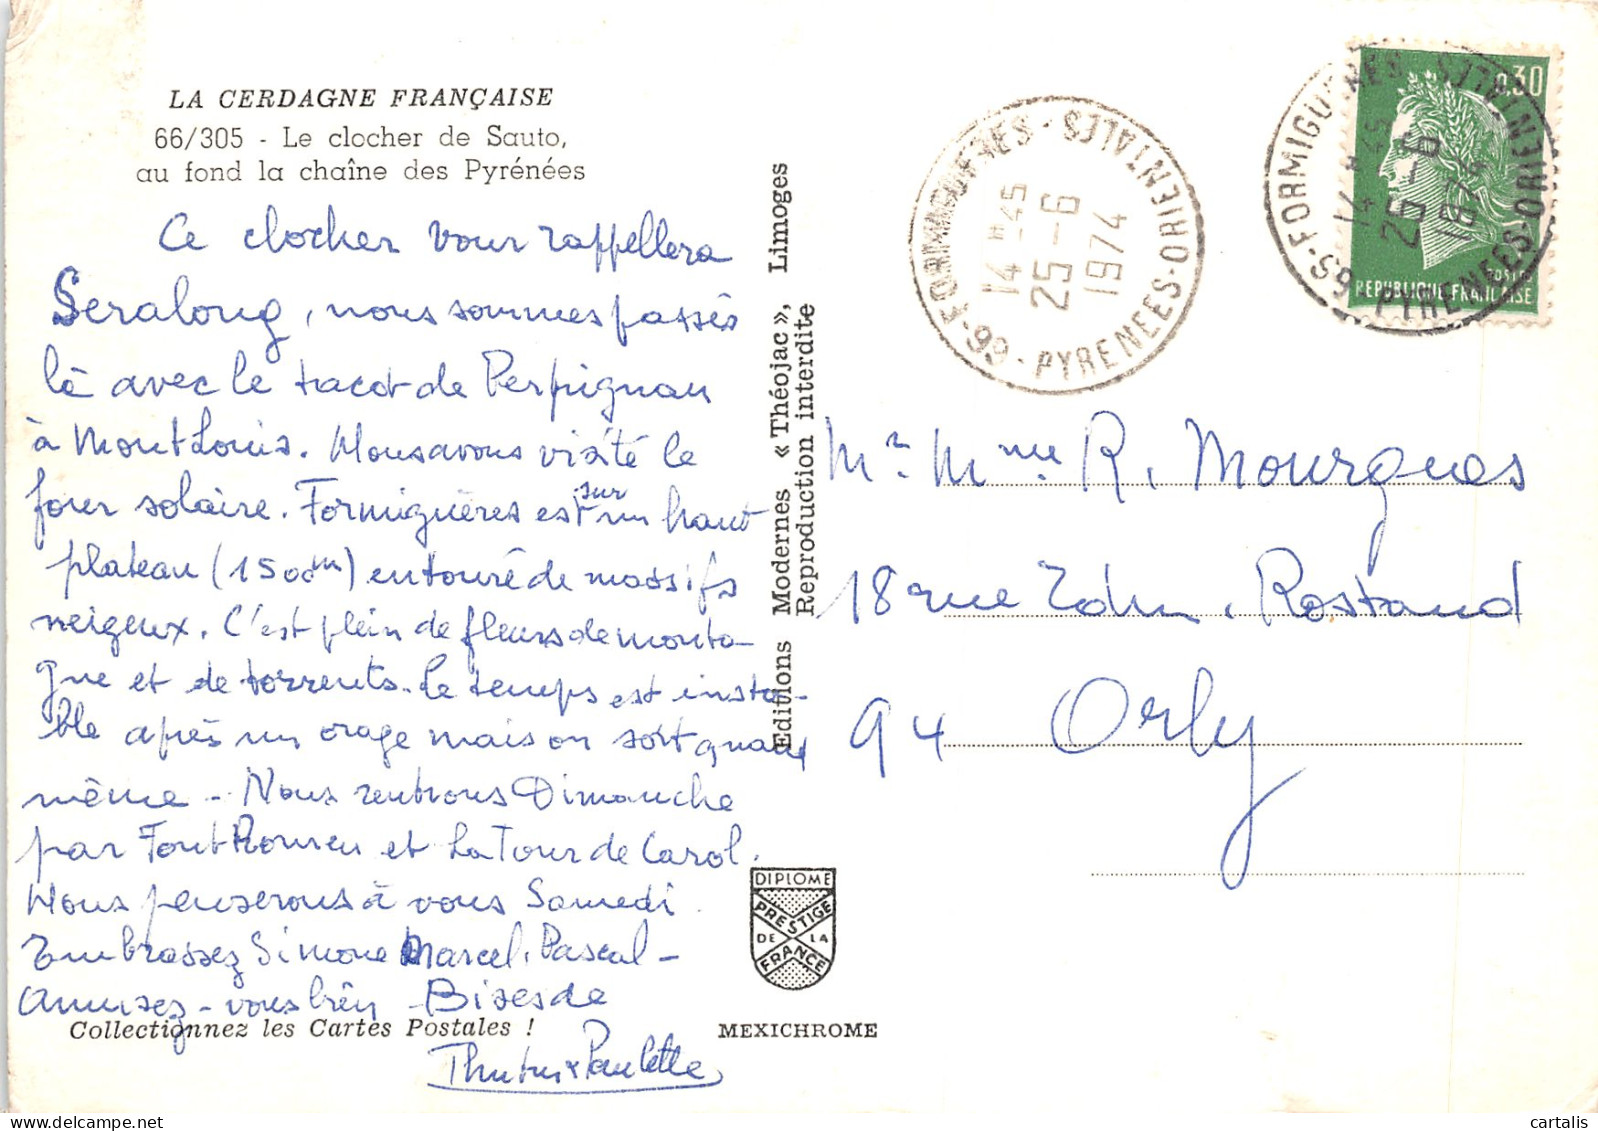 LA CERDAGNE FRANÇAISE
66/305 - Le clocher de Sauto,
au fond la chaîne des Pyrénées
Ce clocher vous rappellera
Seralong, nous sommes passés
là avec le tacot de Perpignan
à Mont Louis. Nous avons visité le
four solaire. Formiguères est sur un haut
plateau (1500m) entouré de massifs
neigeux. C'est plein de fleurs de monta-
gne et de torrents. Le temps est insta-
ble après un orage mais on sort quand
même - Nous rentrons Dimanche
par Font Romeu et La Tour de Carol.
Nous penserons à vous Samedi.
Embrassez Simone Marcel, Pascal -
Amusez-vous bien - Bises de
Paulette
Collectionnez les Cartes Postales !
Editions Modernes « Théojac », Limoges
Reproduction interdite
DIPLOME
PRESTIGE
DE LA
FRANCE
MEXICHROME
66 - FORMIGUERES - PYRENEES-ORIENTALES
14H45
25-6
1974
0,30
POSTES
REPUBLIQUE FRANÇAISE
66 - FORMIGUERES - PYRENEES-ORIENTALES
14H45
25-6
1974
Mr Mme R. Mourgues
18 rue Edm. Rostand
94 Orly
cartalis